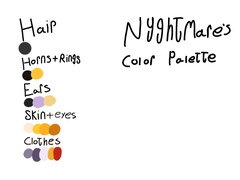 Hair
Horns+Rings
Ears
Skin+eyes
Clothes
Nyghtmare's
Color Palette